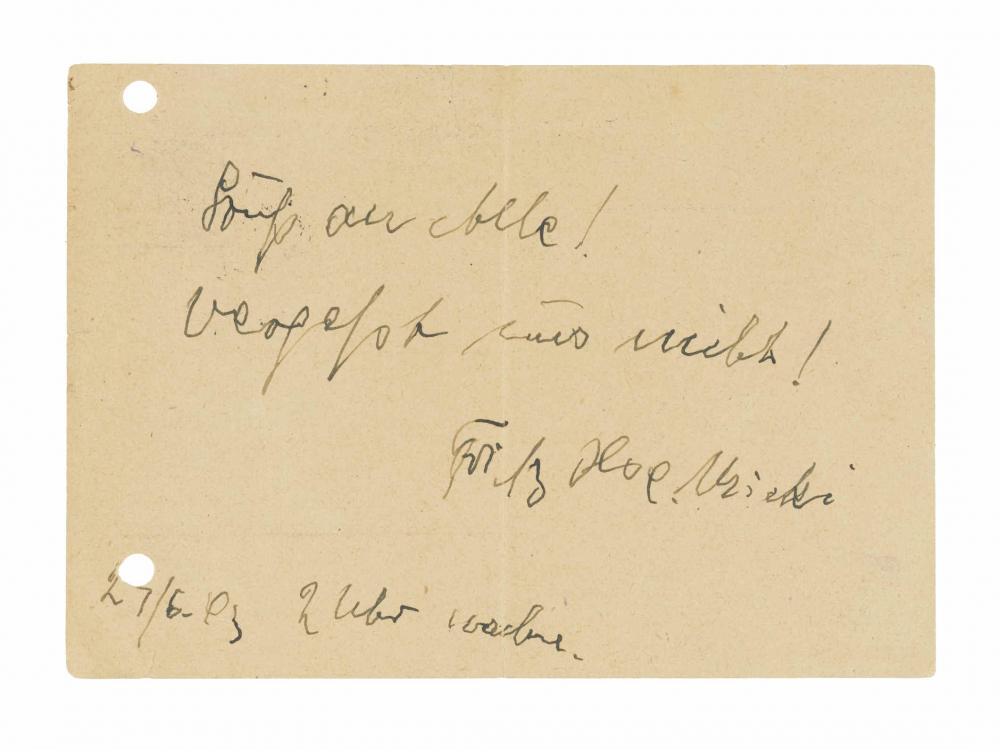 Gruß an Alle!
Vergeßt uns nicht!
Fritz
27/6. 43 2 Uhr nachm.